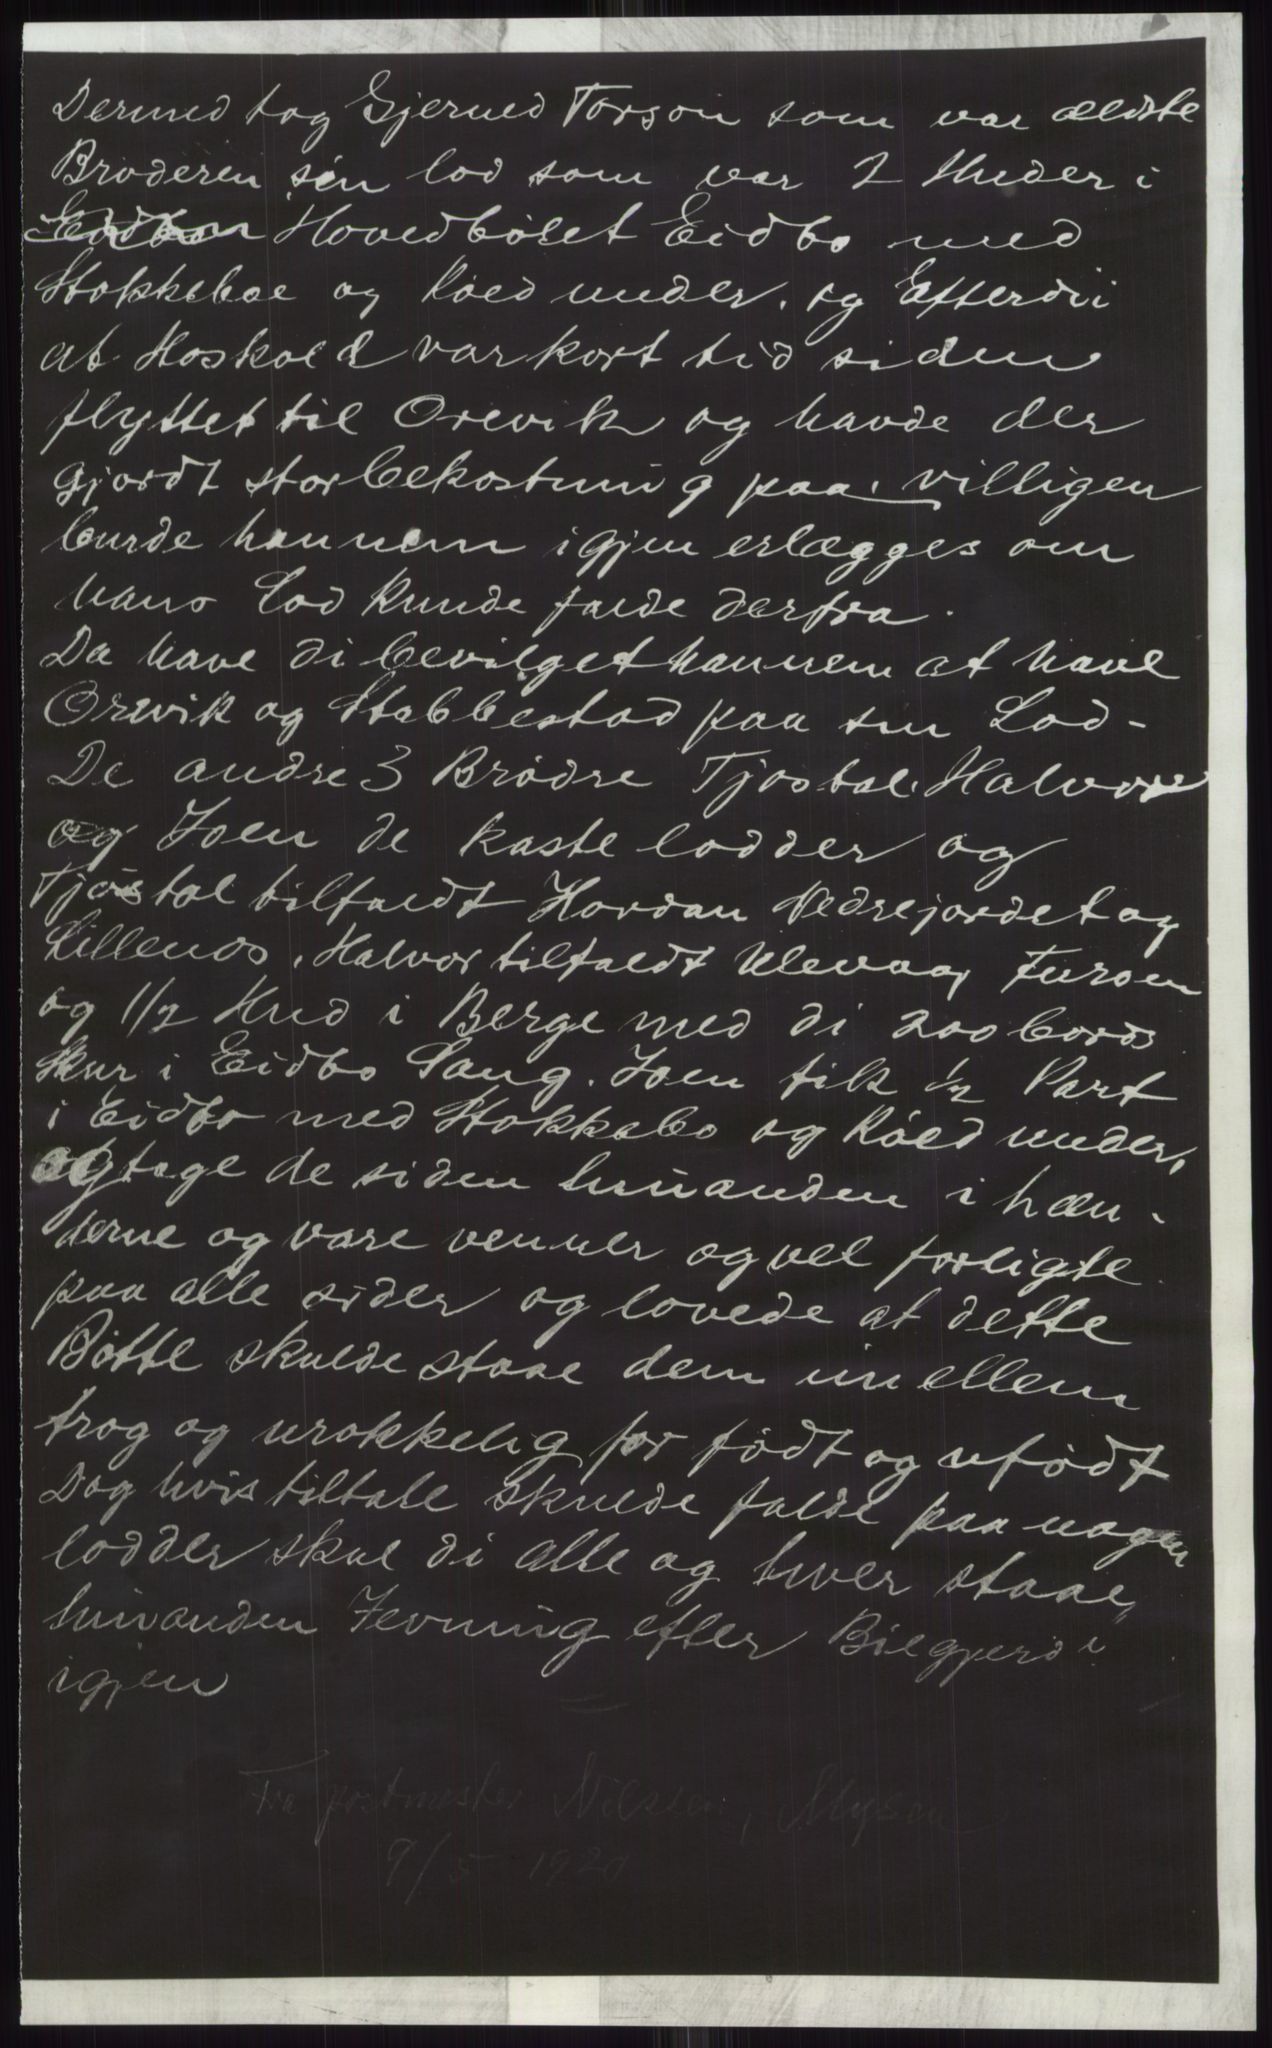 Dermed tog Gjermed Torson som var ældste
Broderen sin lod som var 2 Huder i
Hovedbølet Eidbo med
Stokkeboe og Røed under. og Efterdi
at Hoskold var kort tid siden
flyttet til Orevik og havde der
gjordt stor bekostning paa. villigen
burde hannem igjen erlægges om
hans Lod kunde falde derfra.
Da have di bevilget hannem at have
Orevik og Stabbestad paa sin Lod-
De andre 3 Brødre Tjøstol. Halvor
og Joen de kaste lodder og
Tjøstol tilfaldt Hovdan Nedrejordet og
Lillenos. Halvor tilfaldt Ulevaag Furoen
og 1/2 Hud i Berge med di 200 bords
Skur i Eidbo Saug. Joen fik 1/2 Part
i Eidbo med Stokkebo og Røed under,
og toge de siden hinanden i hæn-
derne og vare venner og vel forligte
paa alle sider og lovede at dette
Bötte skulde staae dem imellem
trog og urokkelig for født og ufødt
Dog hvis tiltale skulde falde paa nogen
lodder skal di alle og hver staae
hinanden Jevning efter
igjen
Fra postmester Nilssen, Mysen
9/5 1920